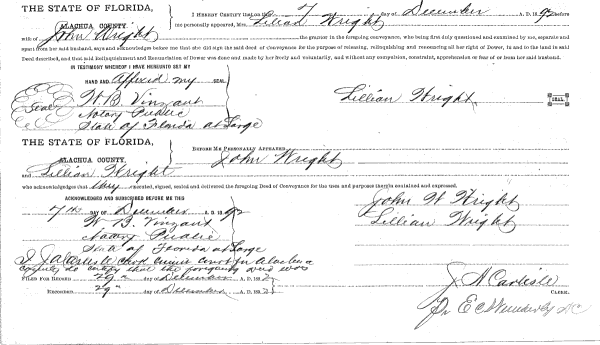 THE STATE OF FLORIDA,
ALACHUA COUNTY.
I HEREBY CERTIFY that on this 7 day of December A. D. 1892 before
me personally appeared, Mrs. Lillian Wright
wife of John Wright the grantor in the foregoing conveyance, who being first duly questioned and examined by me, separate and
apart from her said husband, says and acknowledges before me that she did sign the said deed of Conveyance for the purpose of releasing, relinquishing and renouncing all her right of Dower, in and to the land in said
Deed described, and that said Relinquishment and Renunciation of Dower was done and made by her freely and voluntarily, and without any compulsion, constraint, apprehension or fear of or from her said husband.
IN TESTIMONY WHEREOF I HAVE HEREUNTO SET MY
HAND AND Affixed my SEAL
Seal W. B. Vinzant
Lillian Wright SEAL
Notary Public
State of Florida at Large
THE STATE OF FLORIDA,
ALACHUA COUNTY.
BEFORE ME PERSONALLY APPEARED John Wright
and Lillian Wright
who acknowledges that they executed, signed, sealed and delivered the foregoing Deed of Conveyance for the uses and purposes therein contained and expressed.
ACKNOWLEDGED AND SUBSCRIBED BEFORE ME THIS
7th DAY OF December A. D. 1892
John W Wright
W. B. Vinzant
Lillian Wright
Notary Public
State of Florida at Large
I J A Carlisle Clerk Circuit Court in Alachua
County, do certify that the foregoing deed was
FILED FOR RECORD 29" day of December A. D. 1892
RECORDED 29" day of December A. D. 1892
J A Carlisle CLERK.
Pr E C DC